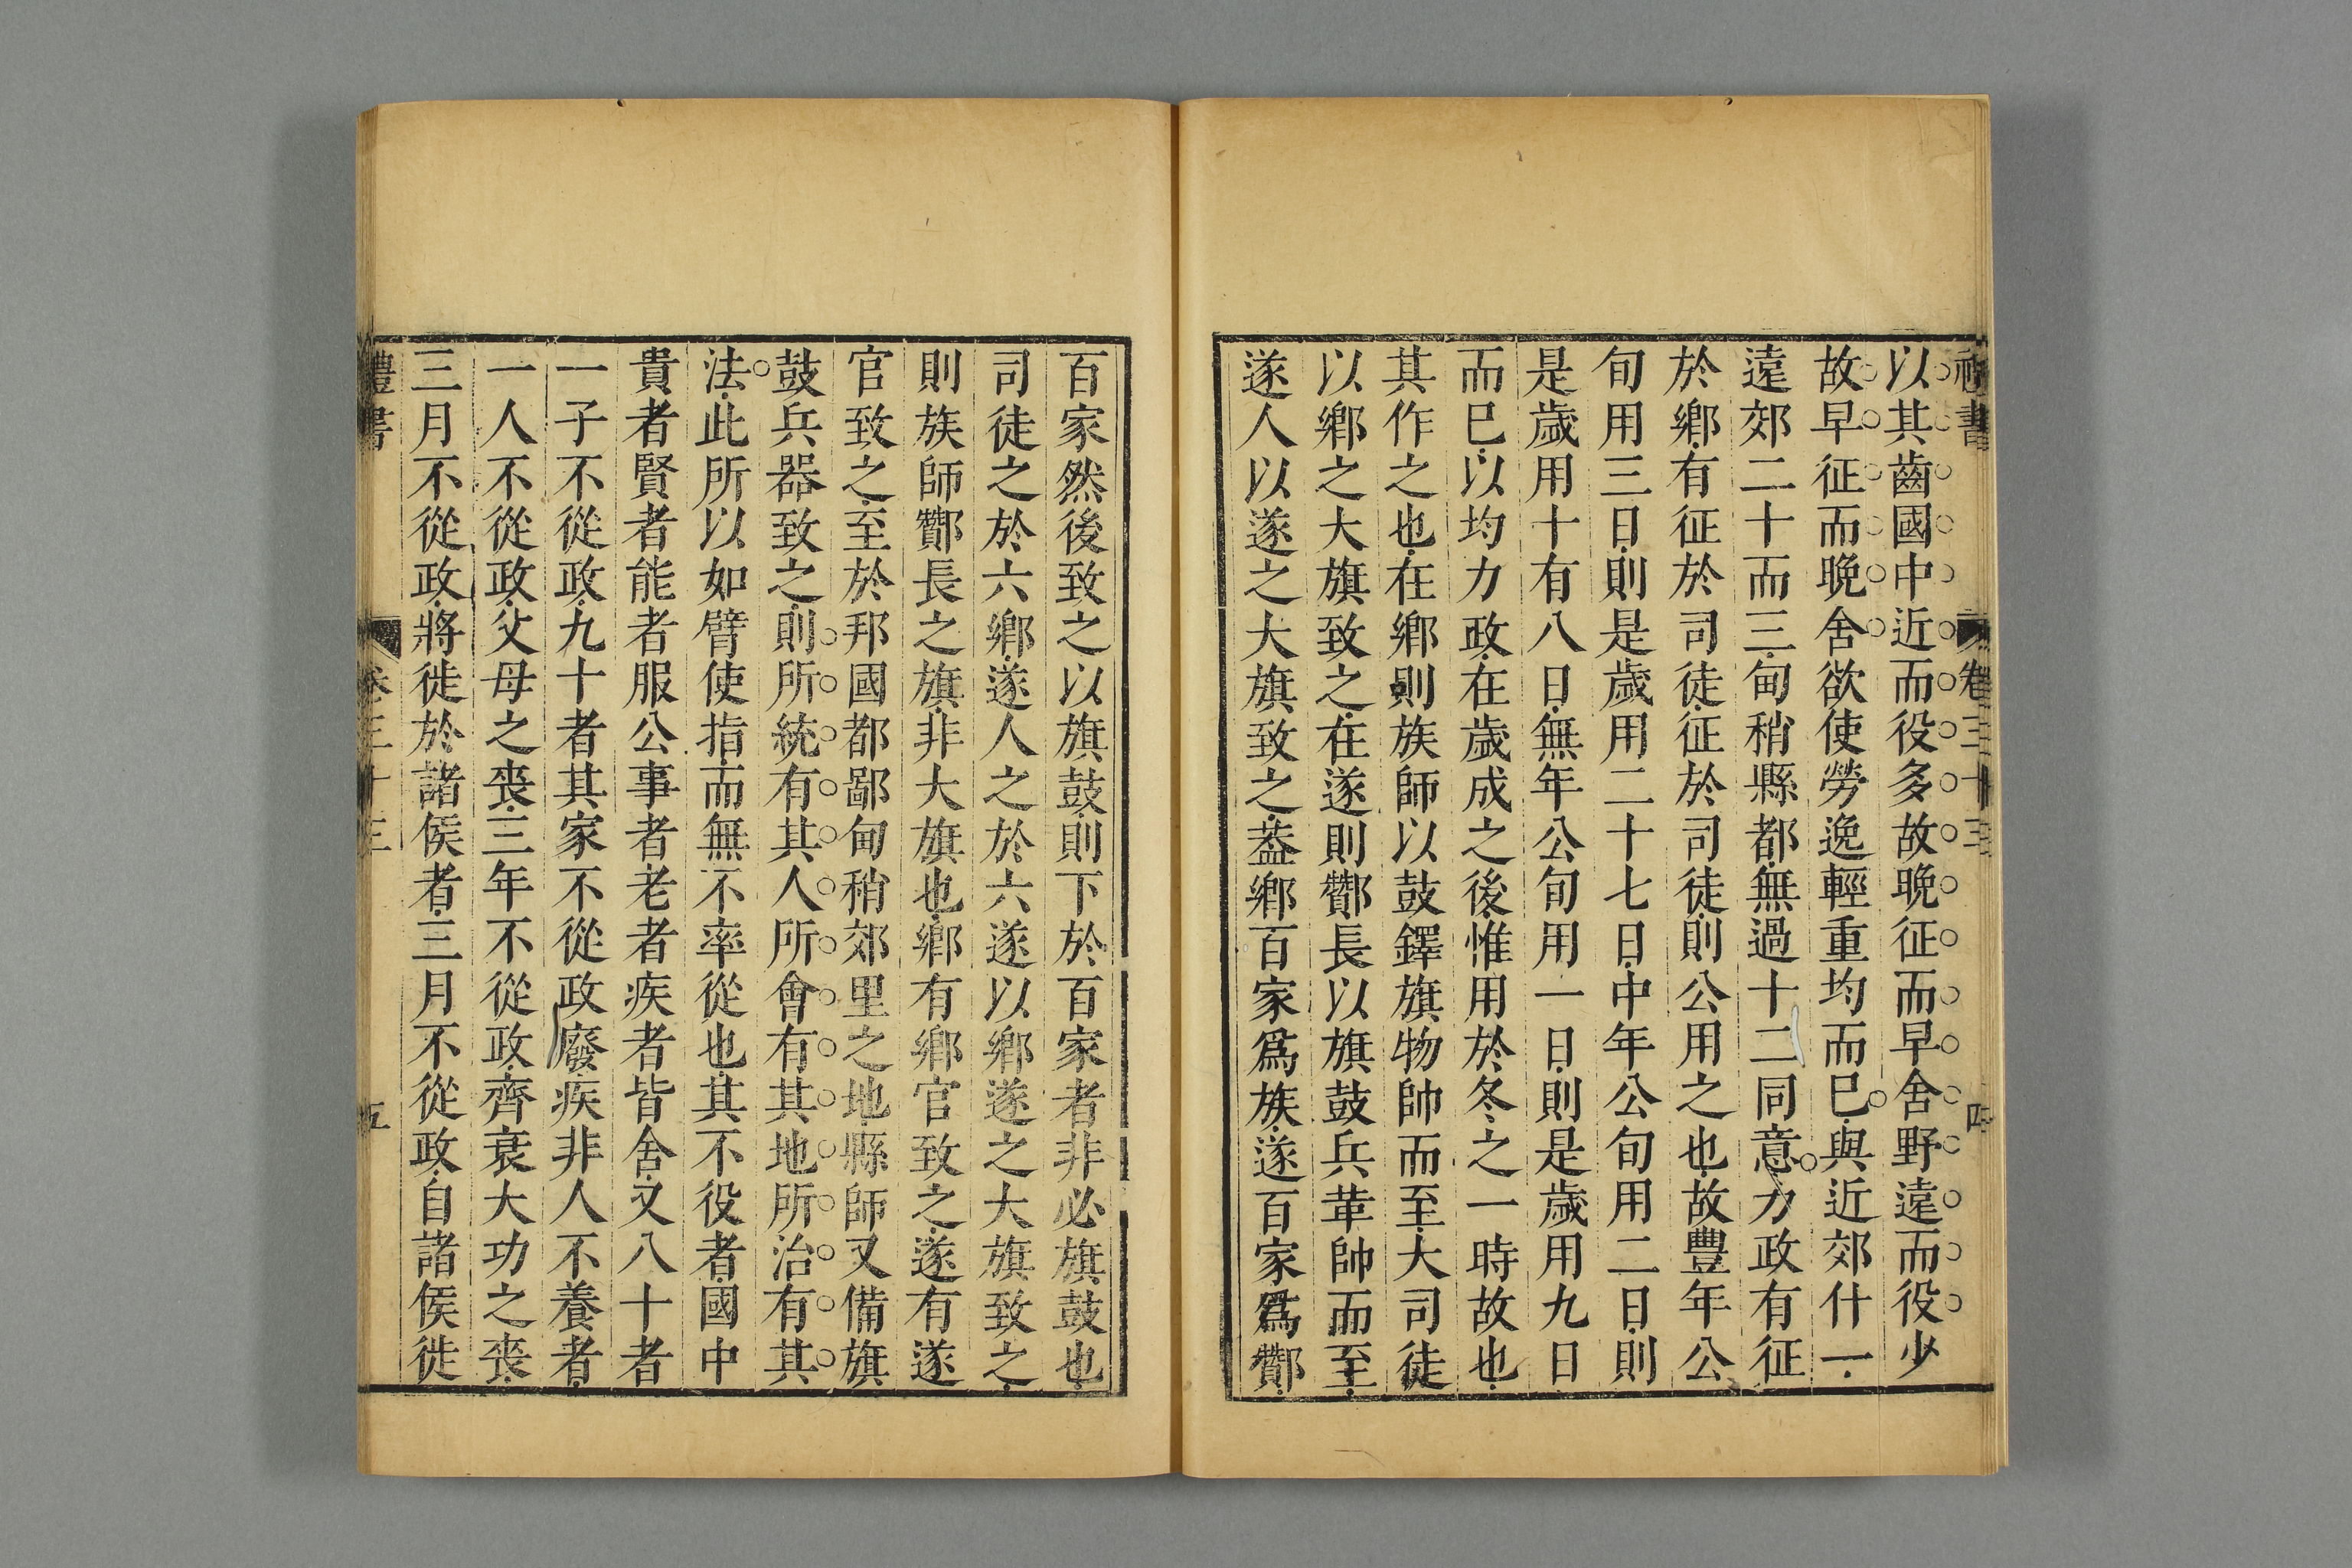 禮書
卷三十三
四
以其齒國中近而役多故晚征而早舍野遠而役少
故早征而晚舍欲使勞逸輕重均而巳與近郊什一
遠郊二十而三甸稍縣都無過十二同意力政有征
於鄉有征於司徒征於司徒則公用之也故豐年公
旬用三日則是歲用二十七日中年公旬用二日則
是歲用十有八日無年公旬用一日則是歲用九日
而巳以均力政在歲成之後惟用於冬之一時故也
其作之也在鄉則族師以鼓鐸旗物帥而至大司徒
以鄉之大旗致之在遂則酇長以旗鼓兵革帥而至
遂人以遂之大旗致之葢鄉百家爲族遂百家爲酇
百家然後致之以旗鼓則下於百家者非必旗鼓也
司徒之於六鄉遂人之於六遂以鄉遂之大旗致之
則族師酇長之旗非大旗也鄉有鄉官致之遂有遂
官致之至於邦國都鄙甸稍郊里之地縣師又備旗
鼓兵器致之則所統有其人所會有其地所治有其
法此所以如臂使指而無不率從也其不役者國中
貴者賢者能者服公事者老者疾者皆舍又八十者
一子不從政九十者其家不從政廢疾非人不養者
一人不從政父母之喪三年不從政齊衰大功之喪
三月不從政將徙於諸侯者三月不從政自諸侯徙
禮書
卷三十三
五